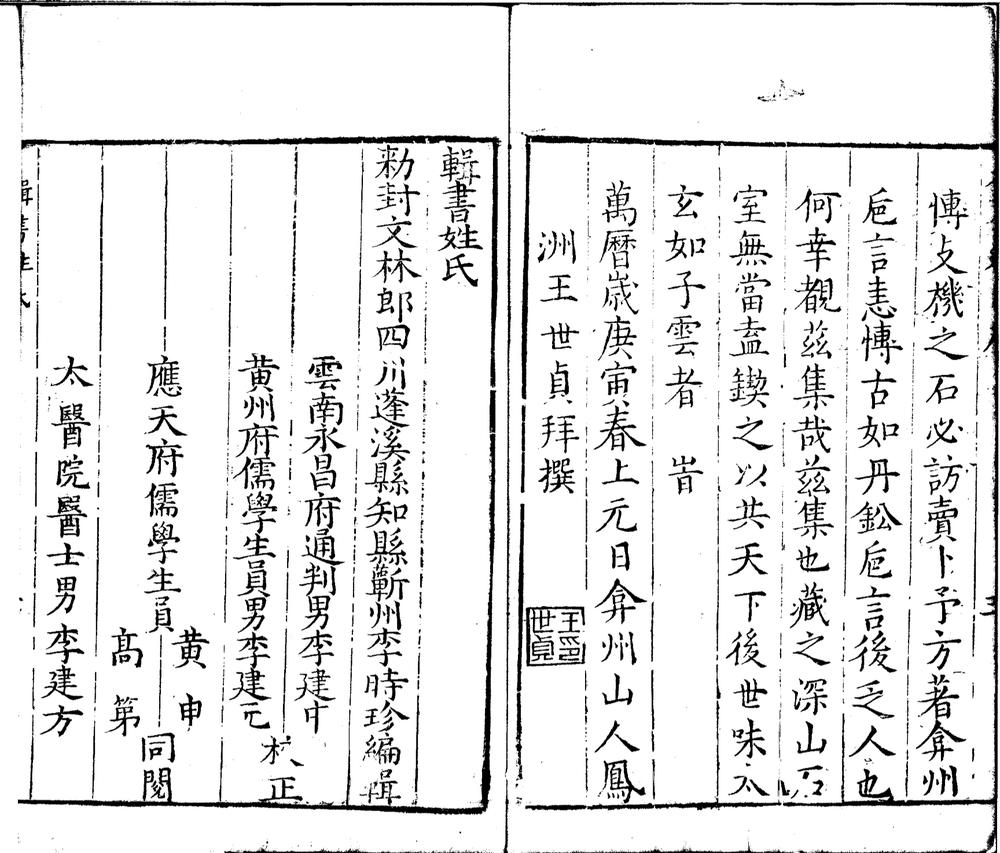 慱攴機之石必訪賣卜予方著弇州
巵言恚慱古如丹鈆巵言後乏人也
何幸覩茲集哉茲集也藏之深山石
室無當盍鍥之以共天下後世味太
玄如子雲者 旹
萬曆歲庚寅春上元日弇州山人鳳
洲王世貞拜撰
王世貞印
輯書姓氏
勑封文林郎四川蓬溪縣知縣蘄州李時珍編輯
雲南永昌府通判男李建中
黄州府儒學生員男李建元
校正
應天府儒學生員
黄申
高第
同閱
太醫院醫士男李建方
輯書姓氏